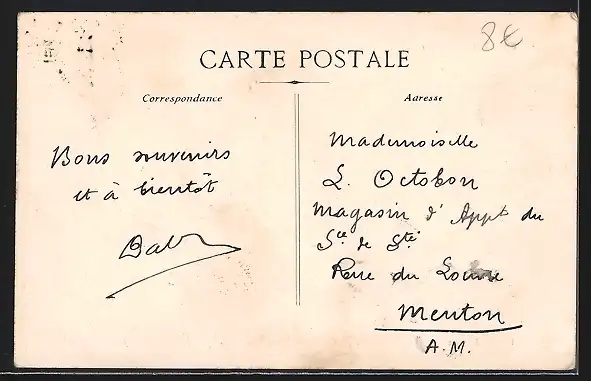 8€
CARTE POSTALE
Correspondance
Adresse
Bons souvenirs
et à bientôt
Mademoiselle
L. Octobon
Magasin d' Appts du
Sce de Sté
Rue du Louvre
Menton
A.M.